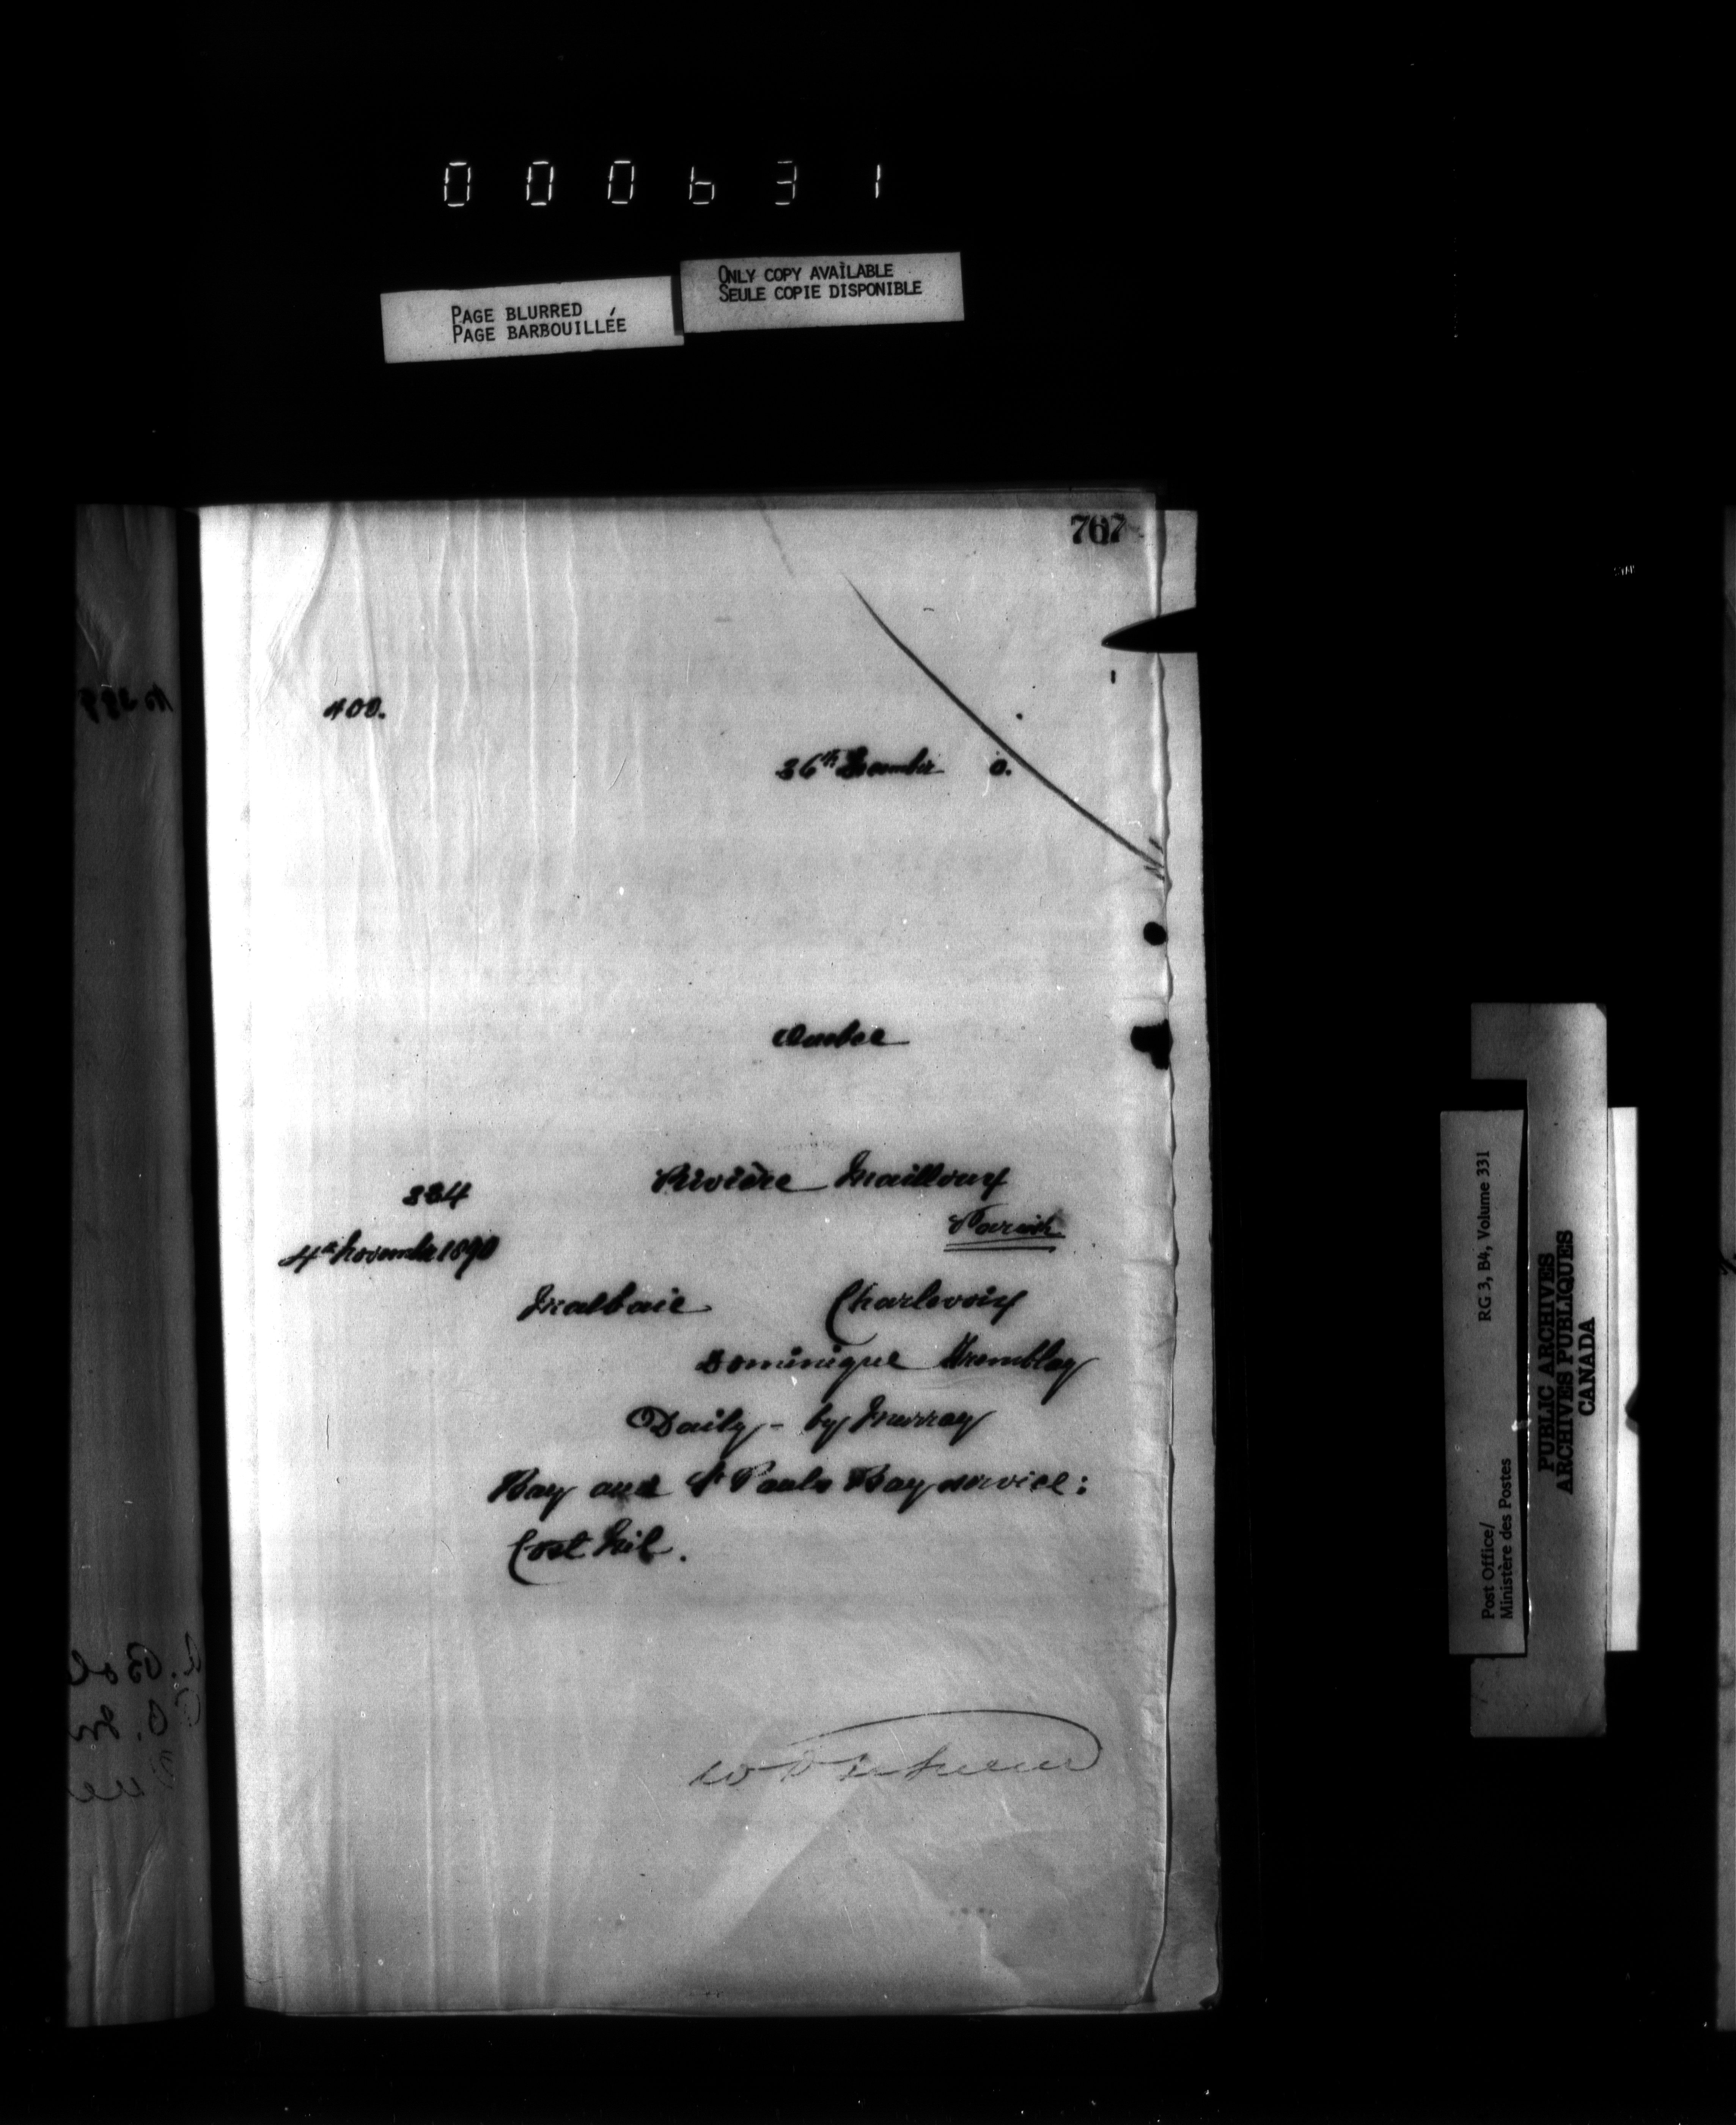 000631
PAGE BLURRED
PAGE BARBOUILLÉE
ONLY COPY AVAILABLE
SEULE COPIE DISPONIBLE
767
400.
26th December 0.
Quebec
324
4th November 1890
Rivière Mailloux
Parish
Malbaie Charlevoix
Dominique Tremblay
Daily - by Murray
Bay and St Pauls Bay service:
Cost Nil.
RG 3, B4, Volume 331
Post Office/
Ministère des Postes
PUBLIC ARCHIVES
ARCHIVES PUBLIQUES
CANADA